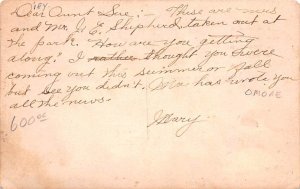 Dear Aunt Sue: These are mine
and Mr. G. E. Shipherd, taken out at
the park. How are you getting
along? I rather thought you were
coming out this summer or fall
but see you didn't. Ma has wrote you
all the news.
Mary
600